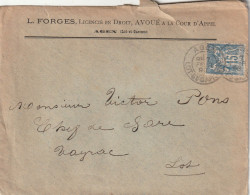 L. FORGES, LICENCIÉ EN DROIT, AVOUÉ A LA COUR D'APPEL
AGEN (Lot-et-Garonne)
Monsieur Victor Pons
Chef de Gare
Vayrac
Lot
15